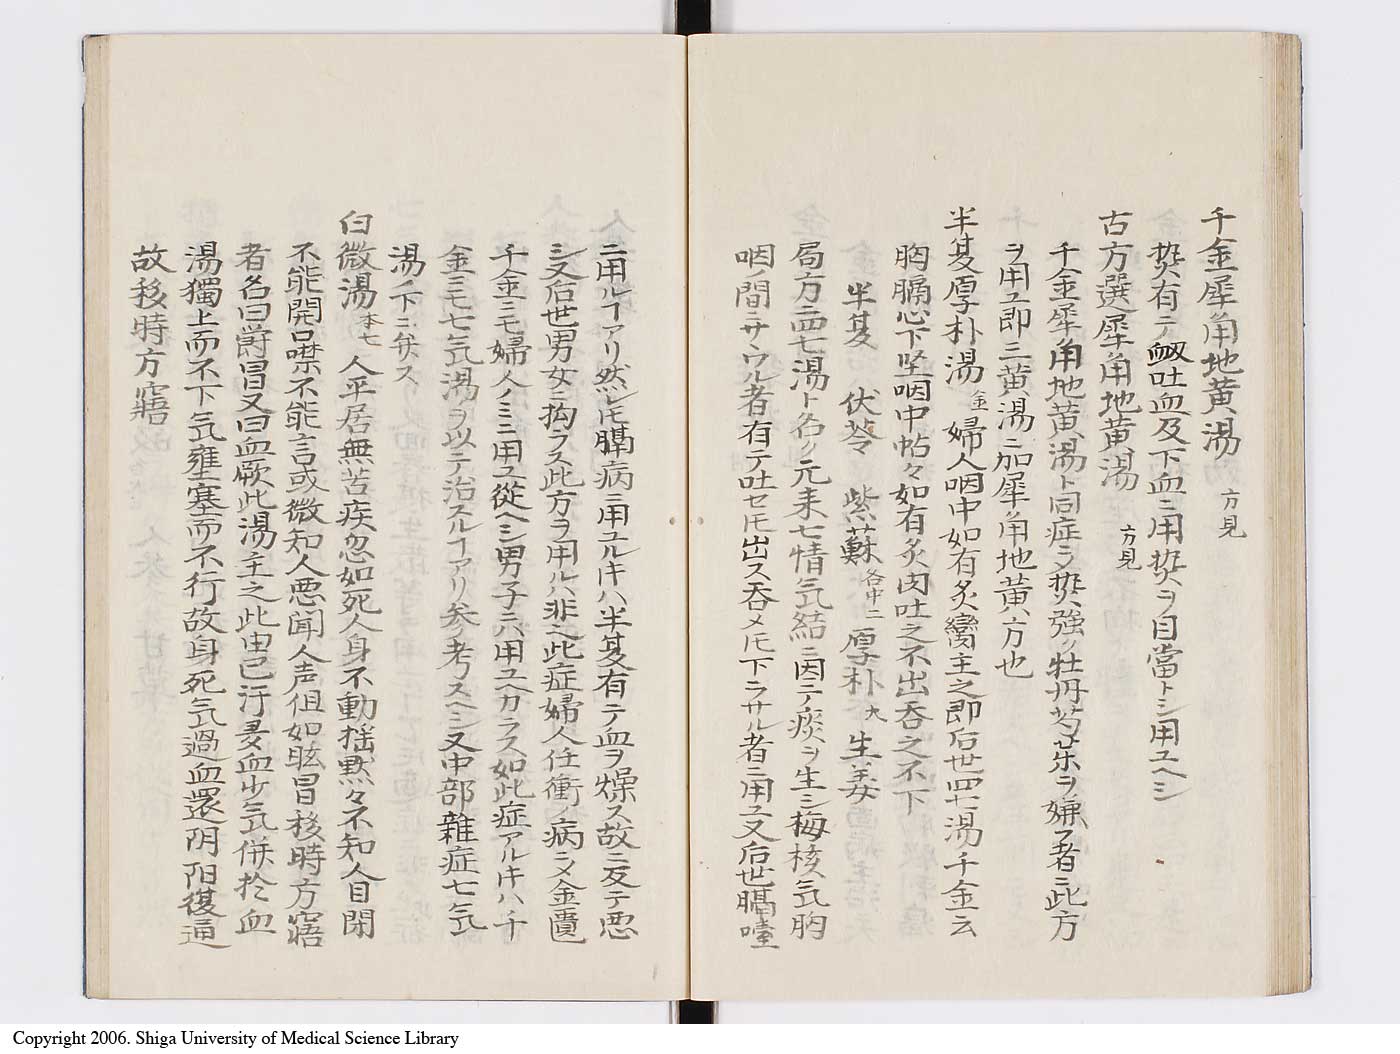 千金犀角地黄湯 方見
熱有テ衂吐血及下血ニ用熱ヲ目當トシ用ユヘシ
古方選犀角地黄湯 方見
千金犀角地黄湯ト同症ラ熱強ク牡丹芍薬ヲ嫌フ者ニ此方
ヲ用ユ即三黄湯ニ加犀角地黄方也
半夏厚朴湯 金 婦人咽中如有炙臠主之即后世四七湯千金云
胸膈心下坚咽中帖々如有炙肉吐之不出吞之不下
半夏 伏苓 紫蘇 各中二 厚朴 大 生姜
局方ニ四七湯ト名ク元来七情気結ニ因テ痰ヲ生シ梅核気胸
咽ノ間ニサワル者有テ吐セ𪜈出ス吞メ𪜈下ラサル者ニ用ユ又后世膈噎
ニ用ルヿアリ然レ𪜈膈病ニ用ユルキハ半夏有テ血ヲ燥ス故ニ反テ悪
シ又后世男女ニ拘ラス此方ヲ用ルハ非也此症婦人任衝ノ病ニメ金匱
千金ニモ婦人ノミニ用ユ從ヘシ男子ニハ用ユヘカラス如此症アルキハ千
金ニモ七気湯ヲ以テ治スルヿアリ参考スヘシ又中部雜症七気
湯ノ下ニ弁ス
白微湯 本七 人平居無苦疾忽如死人身不動揺黙々不知人目閉
不能開口噤不能言或微知人悪聞人声但如眩冒移時方寤
者名曰爵冒又曰血厥此湯主之此由已汗多血少気併於血
湯獨上而不下気壅塞而不行故身死気過血還阴阳復通
故移時方寤